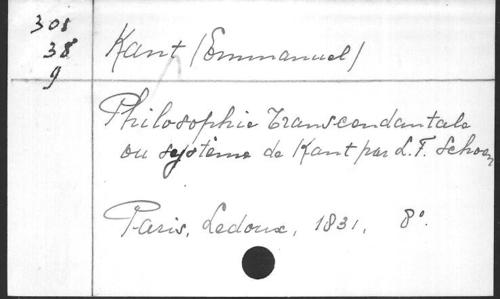 308
38
9
Kant (Emmanuel)
Philosophie transcendantale
ou système de Kant par L. F. Schoen
Paris, Ledoux, 1831, 8°.